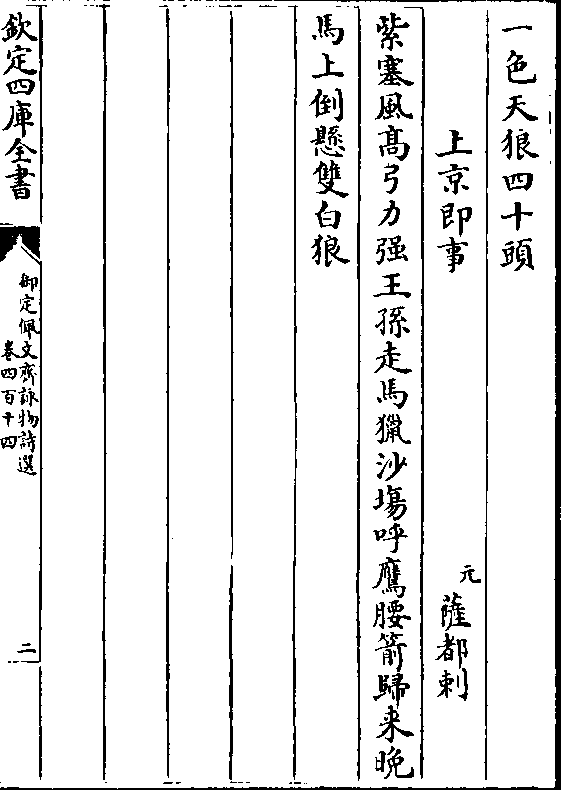 一色天狼四十頭
上京即事
元
薩都剌
紫塞風髙弓力强王孫走馬獵沙塲呼鷹腰箭歸来晩
馬上倒懸雙白狼
欽定四庫全書
御定佩文齋詠物詩選
卷四百十四
二